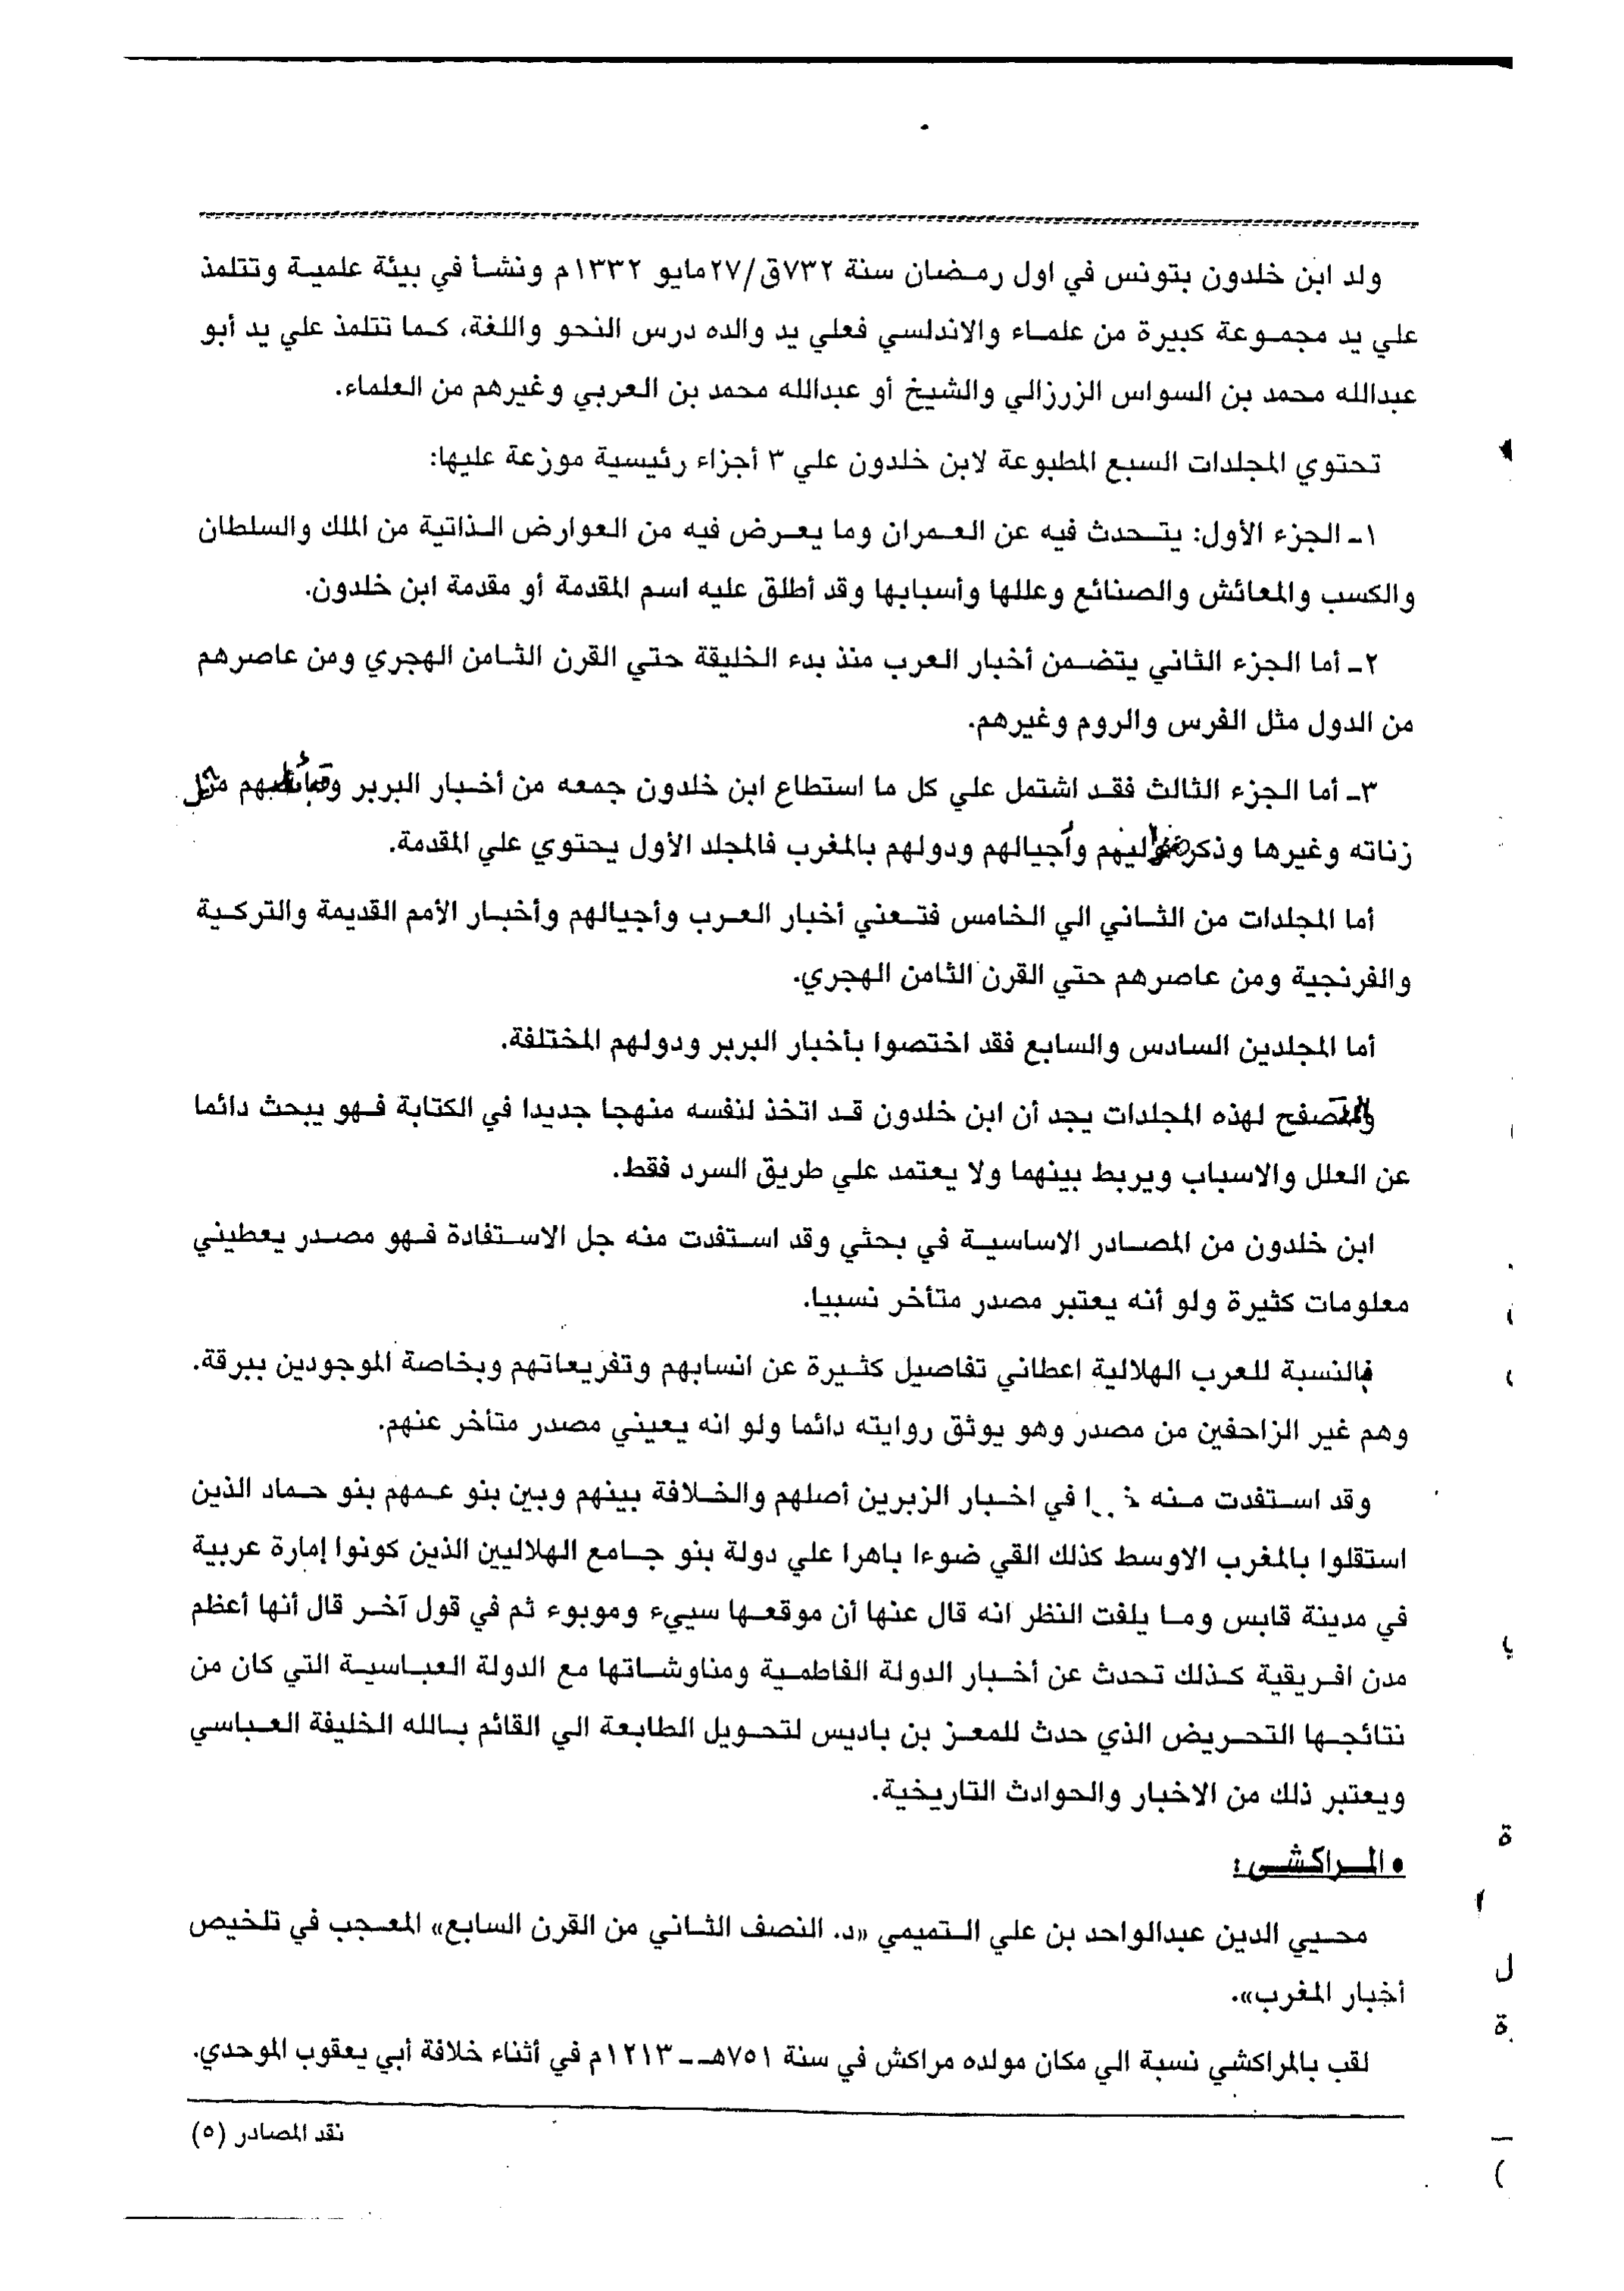 ولد ابن خلدون بتونس في اول رمضان سنة ٧٣٢ق/٢٧مايو ١٣٣٢م ونشأ في بيئة علمية وتتلمذ
علي يد مجموعة كبيرة من علماء والاندلسي فعلي يد والده درس النحو واللغة، كما تتلمذ علي يد أبو
عبدالله محمد بن السواس الزرزالي والشيخ أو عبدالله محمد بن العربي وغيرهم من العلماء.
تحتوي المجلدات السبع المطبوعة لابن خلدون علي ٣ أجزاء رئيسية موزعة عليها:
١ـ الجزء الأول: يتحدث فيه عن العمران وما يعرض فيه من العوارض الذاتية من الملك والسلطان
والكسب والمعائش والصنائع وعللها وأسبابها وقد أطلق عليه اسم المقدمة أو مقدمة ابن خلدون.
٢ـ أما الجزء الثاني يتضمن أخبار العرب منذ بدء الخليقة حتي القرن الثامن الهجري ومن عاصرهم
من الدول مثل الفرس والروم وغيرهم.
٣ـ أما الجزء الثالث فقد اشتمل علي كل ما استطاع ابن خلدون جمعه من أخبار البربر وقبائلهم من
زناته وغيرها وذكر وأجيالهم ودولهم بالمغرب فالمجلد الأول يحتوي علي المقدمة.
أما المجلدات من الثاني الي الخامس فتعني أخبار العرب وأجيالهم وأخبار الأمم القديمة والتركية
والفرنجية ومن عاصرهم حتي القرن الثامن الهجري.
أما المجلدين السادس والسابع فقد اختصوا بأخبار البربر ودولهم المختلفة.
والمتصفح لهذه المجلدات يجد أن ابن خلدون قد اتخذ لنفسه منهجا جديدا في الكتابة فهو يبحث دائما
عن العلل والاسباب ويربط بينهما ولا يعتمد علي طريق السرد فقط.
ابن خلدون من المصادر الاساسية في بحثي وقد استفدت منه جل الاستفادة فهو مصدر يعطيني
معلومات كثيرة ولو أنه يعتبر مصدر متأخر نسبيا.
فالنسبة للعرب الهلالية اعطاني تفاصيل كثيرة عن انسابهم وتفريعاتهم وبخاصة الموجودين ببرقة.
وهم غير الزاحفين من مصدر وهو يوثق روايته دائما ولو انه يعيني مصدر متأخر عنهم.
وقد استفدت منه في اخبار الزبرين أصلهم والخلافة بينهم وبين بنو عمهم بنو حماد الذين
استقلوا بالمغرب الاوسط كذلك القي ضوءا باهرا علي دولة بنو جامع الهلاليين الذين كونوا إمارة عربية
في مدينة قابس وما يلفت النظر انه قال عنها أن موقعها سييء وموبوء ثم في قول آخر قال أنها أعظم
مدن افريقية كذلك تحدث عن أخبار الدولة الفاطمية ومناوشاتها مع الدولة العباسية التي كان من
نتائجها التحريض الذي حدث للمعز بن باديس لتحويل الطابعة الي القائم بالله الخليفة العباسي
ويعتبر ذلك من الاخبار والحوادث التاريخية.
• المراكشى:
محيي الدين عبدالواحد بن علي التميمي «د. النصف الثاني من القرن السابع» المعجب في تلخيص
أخبار المغرب».
لقب بالمراكشي نسبة الي مكان مولده مراكش في سنة ٧٥١هـ ـ ١٢١٣م في أثناء خلافة أبي يعقوب الموحدي.
نقد المصادر (٥)